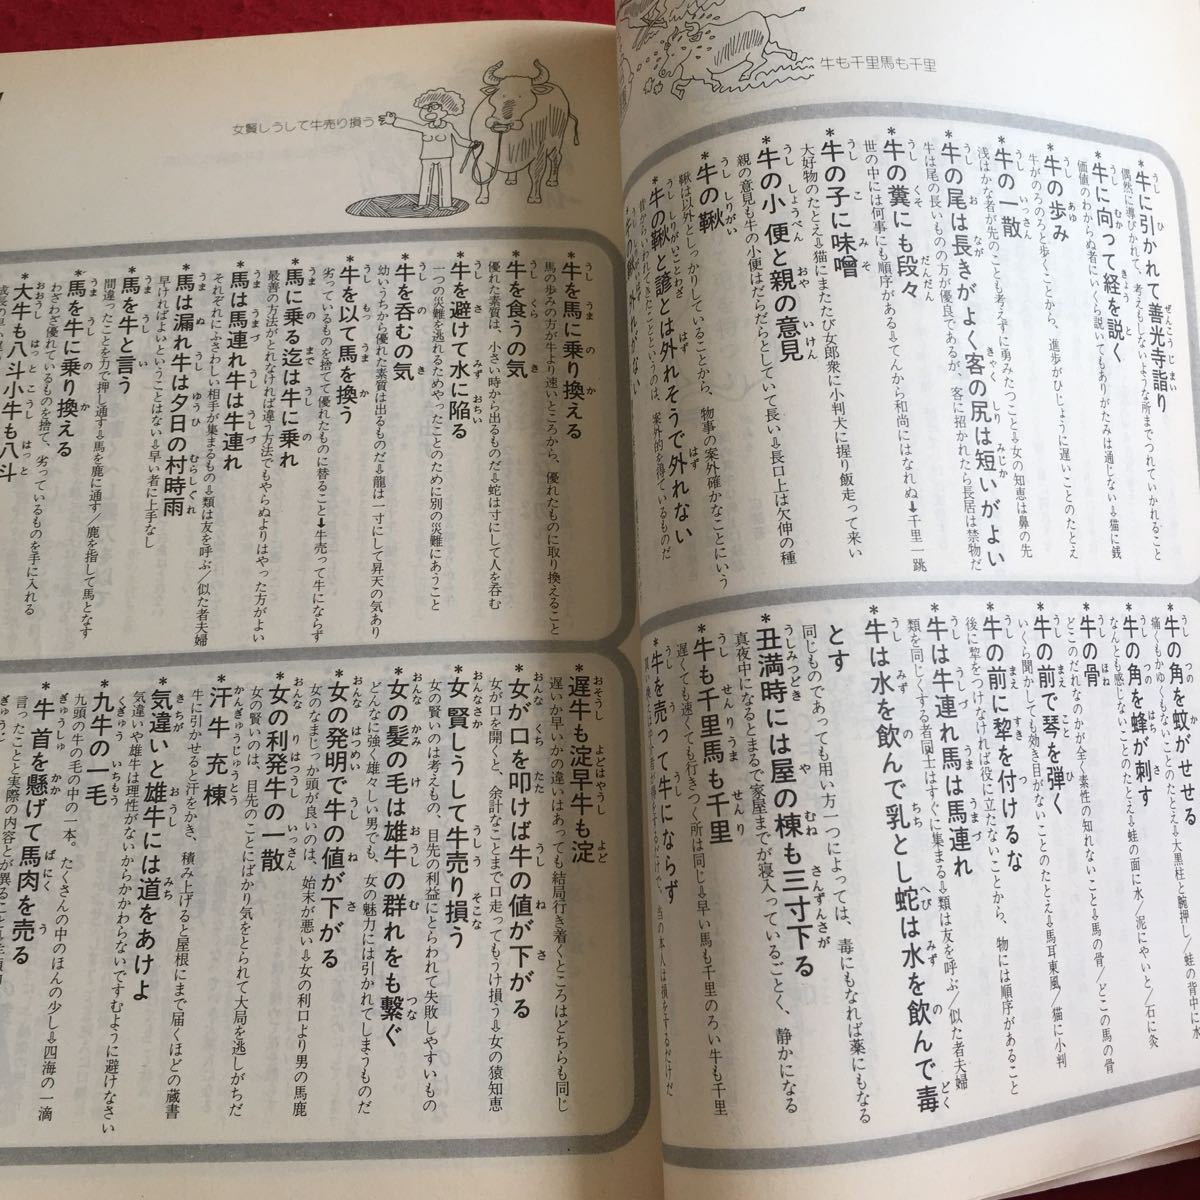 牛も千里馬も千里
*牛に引かれて善光寺詣り
偶然に導びかれて、考えもしないような所までつれていかれること
*牛に向って経を説く
価値のわからぬ者にいくら説いてもありがたみは通じない⇨猫に銭
*牛の歩み
牛がのろのろと歩くことから、進歩がひじょうに遅いことのたとえ
*牛の一散
浅はかな者が先のことも考えずに勇みたつこと⇨女の知恵は鼻の先
*牛の尾は長きがよく客の尻は短いがよい
牛は尾の長いもの方が優良であるが、客に招かれたら長居は禁物だ
*牛の糞にも段々
世の中には何事にも順序がある⇨てんから和尚にはなれぬ⇨千里一跳
*牛の子に味噌
大好物のたとえ⇨猫にまたたび女郎衆に小判犬に握り飯走って来い
*牛の小便と親の意見
親の意見も牛の小便はだらだらとしていて長い⇨長口上は欠伸の種
*牛の鞦
鞦は以外としっかりしていることから、物事の案外確かなことにいう
*牛の鞦と諺とは外れそうで外れない
昔からいわれてきたことというのは、案外的を得ているものだ
*牛の角を蚊がさせる
痛くもかゆくもないことのたとえ⇨大黒柱と腕押し/蛙の背中に水
*牛の角を蜂が刺す
なんとも感じないことのたとえ⇨蛙の面に水/泥にやいと/石に灸
*牛の骨
どこのだれなのかが全く素性の知れないこと⇨馬の骨/どこの馬の骨
*牛の前で琴を弾く
いくら聞かしても効き目がないことのたとえ⇨馬耳東風/猫に小判
*牛の前に犂を付けるな
後に犂をつけなければ役に立たないことから、物には順序があること
*牛は牛連れ馬は馬連れ
類を同じくする者同士はすぐに集まる⇨類は友を呼ぶ/似た者夫婦
*牛は水を飲んで乳とし蛇は水を飲んで毒とす
同じものであっても用い方一つによっては、毒にもなれば薬にもなる
*丑満時には屋の棟も三寸下る
真夜中になるとまるで家屋までが寝入っているごとく、静かになる
*牛も千里馬も千里
遅くても速くても行きつく所は同じ⇨早い馬も千里のろい牛も千里
*牛を売って牛にならず
女賢しうして牛売り損う
*牛を馬に乗り換える
馬の歩みの方が牛より速いところから、優れたものに取り換えること
*牛を食うの気
優れた素質は、小さい時から出るものだ⇨蛇は寸にして人を呑む
*牛を避けて水に陥る
一つの災難を逃れるためやったことのために別の災難にあうこと
*牛を呑むの気
幼いうちから優れた素質は出るものだ⇨龍は一寸にして昇天の気あり
*牛を以て馬を換う
劣っているものを捨てて優れたものに替ること⇨牛売って牛にならず
*馬に乗る迄は牛に乗れ
最善の方法がとれなければ違う方法でもやらぬよりはやった方がよい
*馬は馬連れ牛は牛連れ
それぞれにふさわしい相手が集まるもの⇨類は友を呼ぶ/似た者夫婦
*馬は漏れ牛は夕日の村時雨
早ければよいということはない⇨早い者に上手なし
*馬を牛と言う
間違ったことを力で押し通す⇨馬を鹿に通す/鹿を指して馬となす
*馬を牛に乗り換える
わざわざ優れているものを捨て、劣っているものを手に入れる
*大牛も八斗小牛も八斗
*遅牛も淀早牛も淀
遅い早いの違いはあっても結局行き着くところはどちらも同じ
*女が口を叩けば牛の値が下がる
女が口を開くと、余計なことまで口走ってもうけ損う⇨女の猿知恵
*女賢しうして牛売り損う
女の賢いのは考えもの、目先の利益にとらわれて失敗しやすいもの
*女の髪の毛は雄牛の群れをも繋ぐ
どんなに強く雄々しい男でも、女の魅力には引かれてしまうものだ
*女の発明で牛の値が下がる
女のなまじっか頭が良いのは、始末が悪い⇨女の利口より男の馬鹿
*女の利発牛の一散
女の賢いのは、目先のことにばかり気をとられて大局を逃しがちだ
*汗牛充棟
牛に引かせると汗をかき、積み上げると屋根にまで届くほどの蔵書
*気違いと雄牛には道をあけよ
気違いや雄牛は理性がないからかかわらないですむように避けなさい
*九牛の一毛
九頭の牛の毛の中の一本。たくさんの中のほんの少し⇨四海の一滴
*牛首を懸げて馬肉を売る
言ったことと実際の内容とが異ること